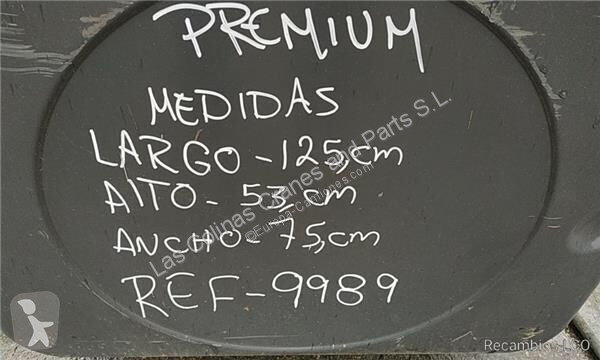 PREMIUM
MEDIDAS
LARGO-125,cm
AlTO-53,cm
ANCHO-75,cm
REF-9989
Las Colinas Cranes and Parts S.L.
©Europa-Camiones.com
Recambios LCO